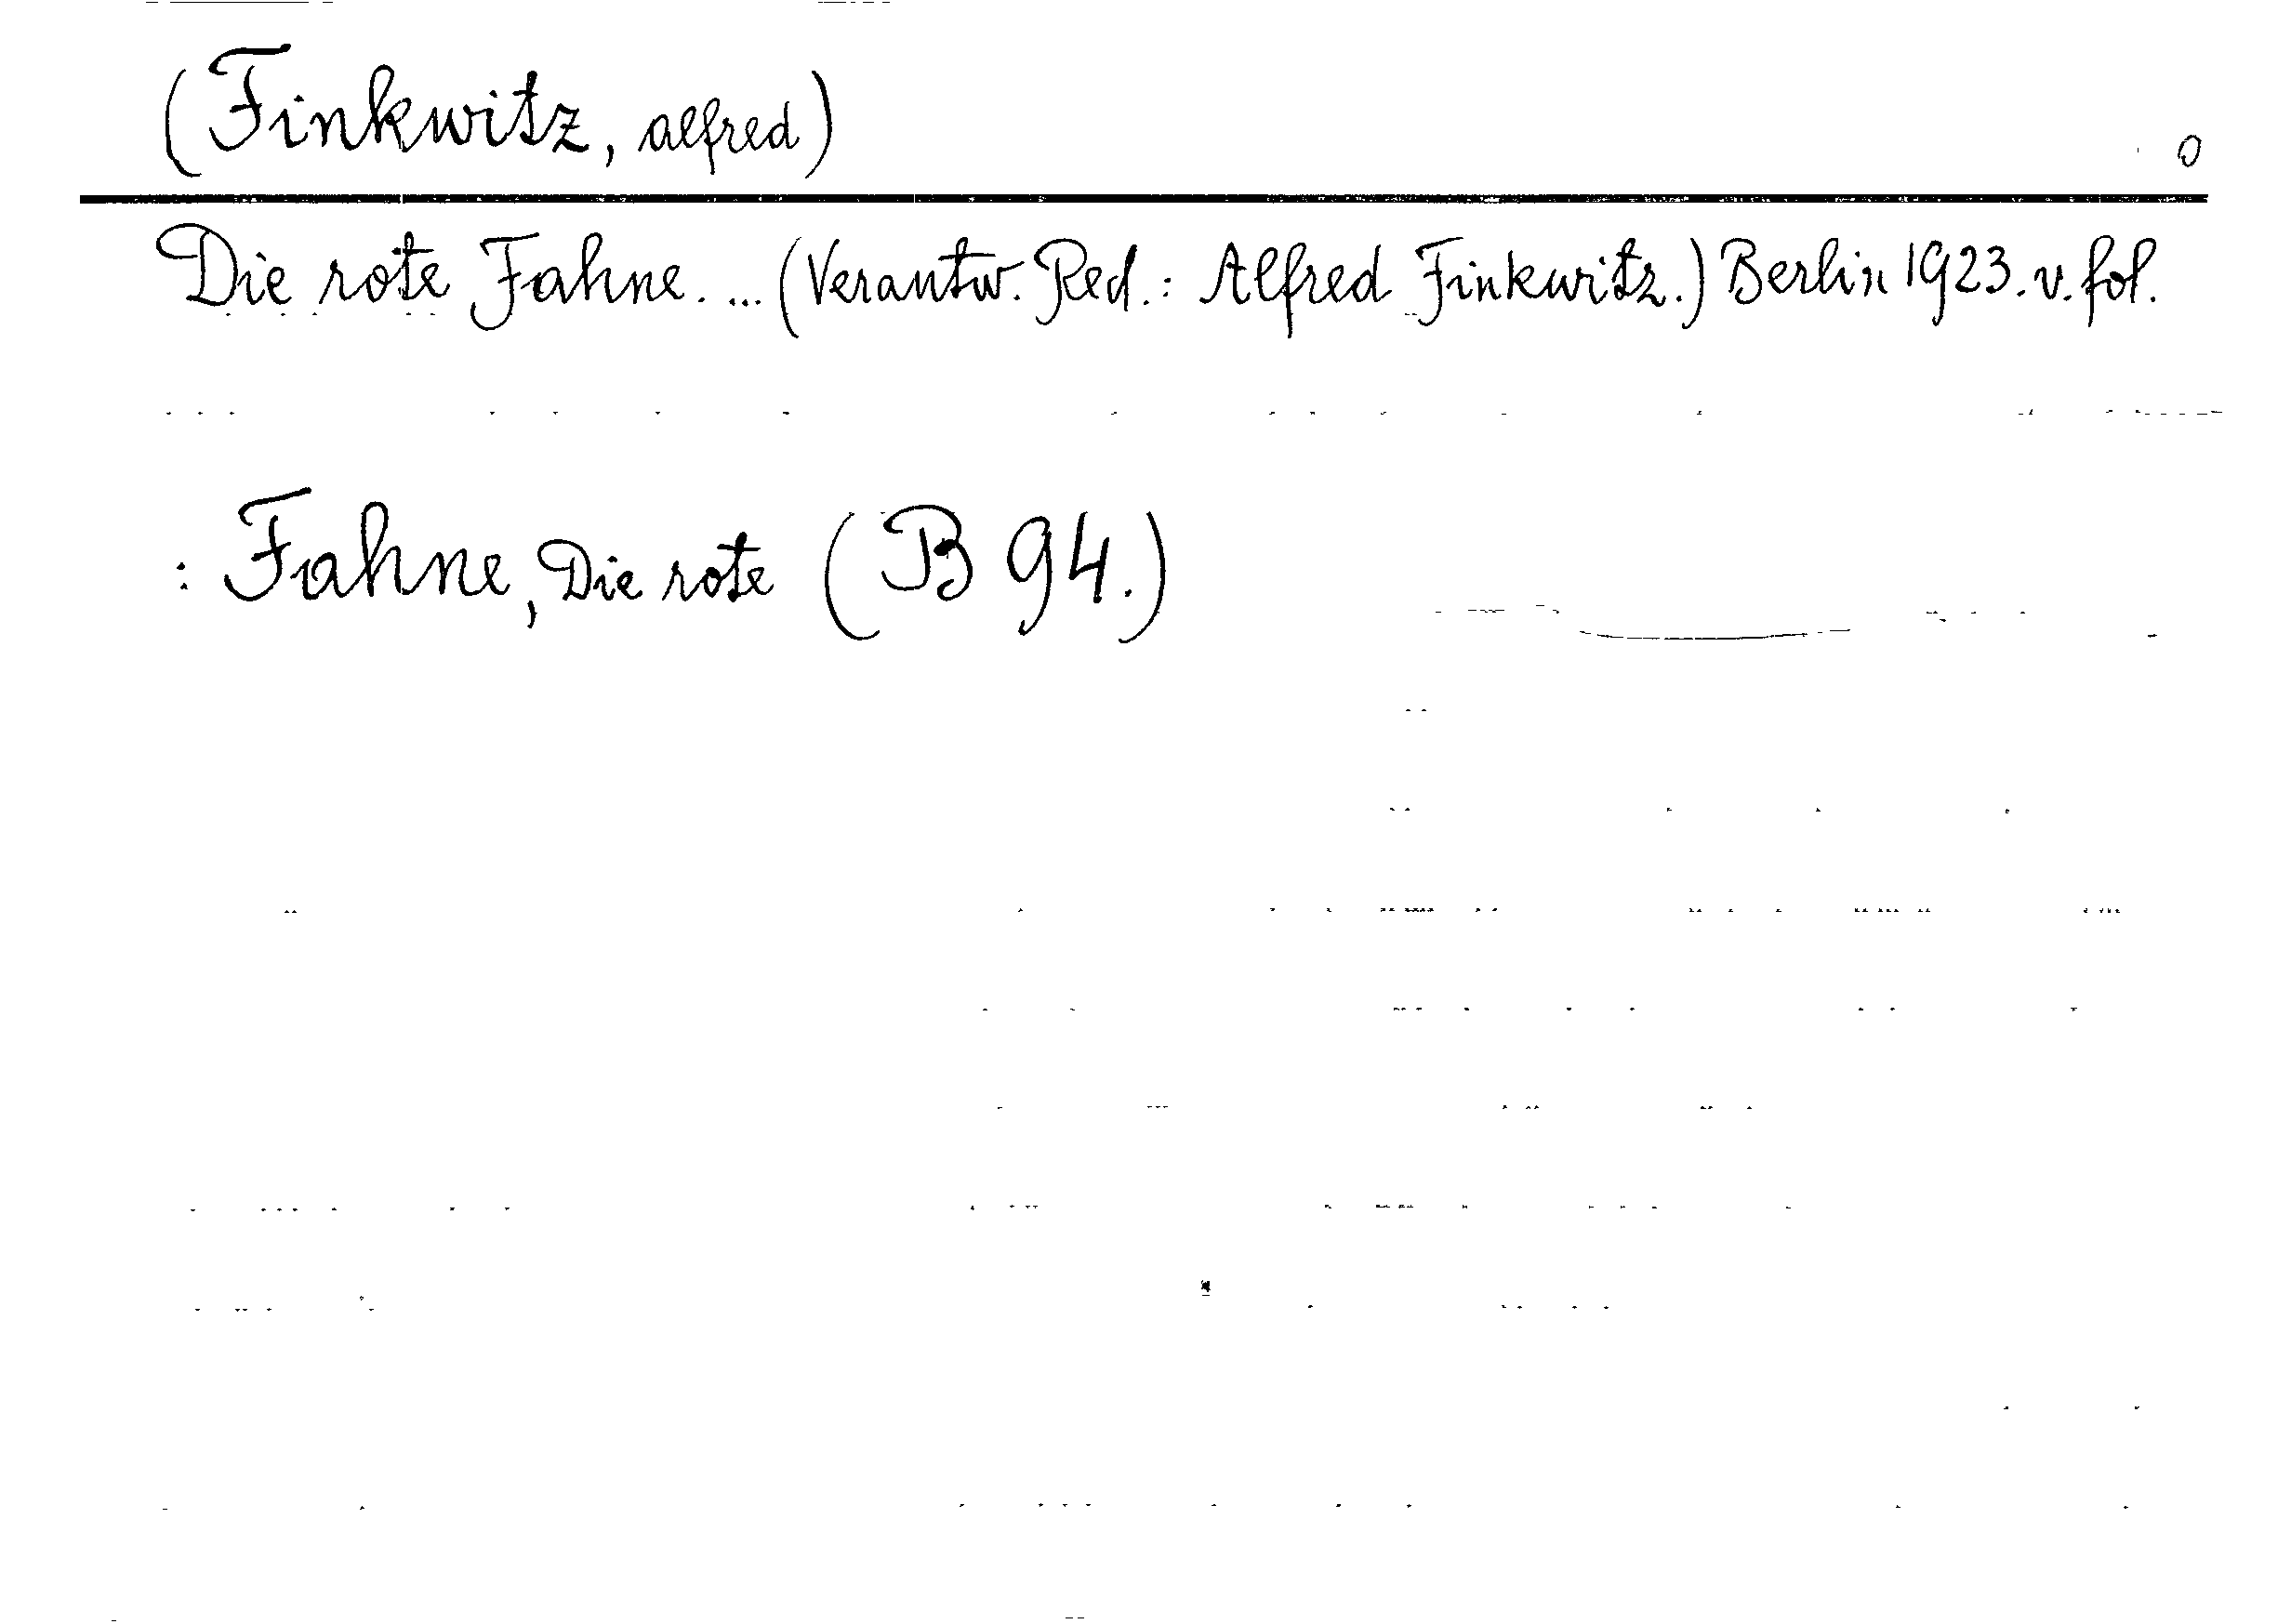 (Finkwitz, Alfred)
0
Die rote Fahne. ... (Verantw. Red.: Alfred Finkwitz.) Berlin 1923. v. fol.
: Fahne, Die rote (B 94.)